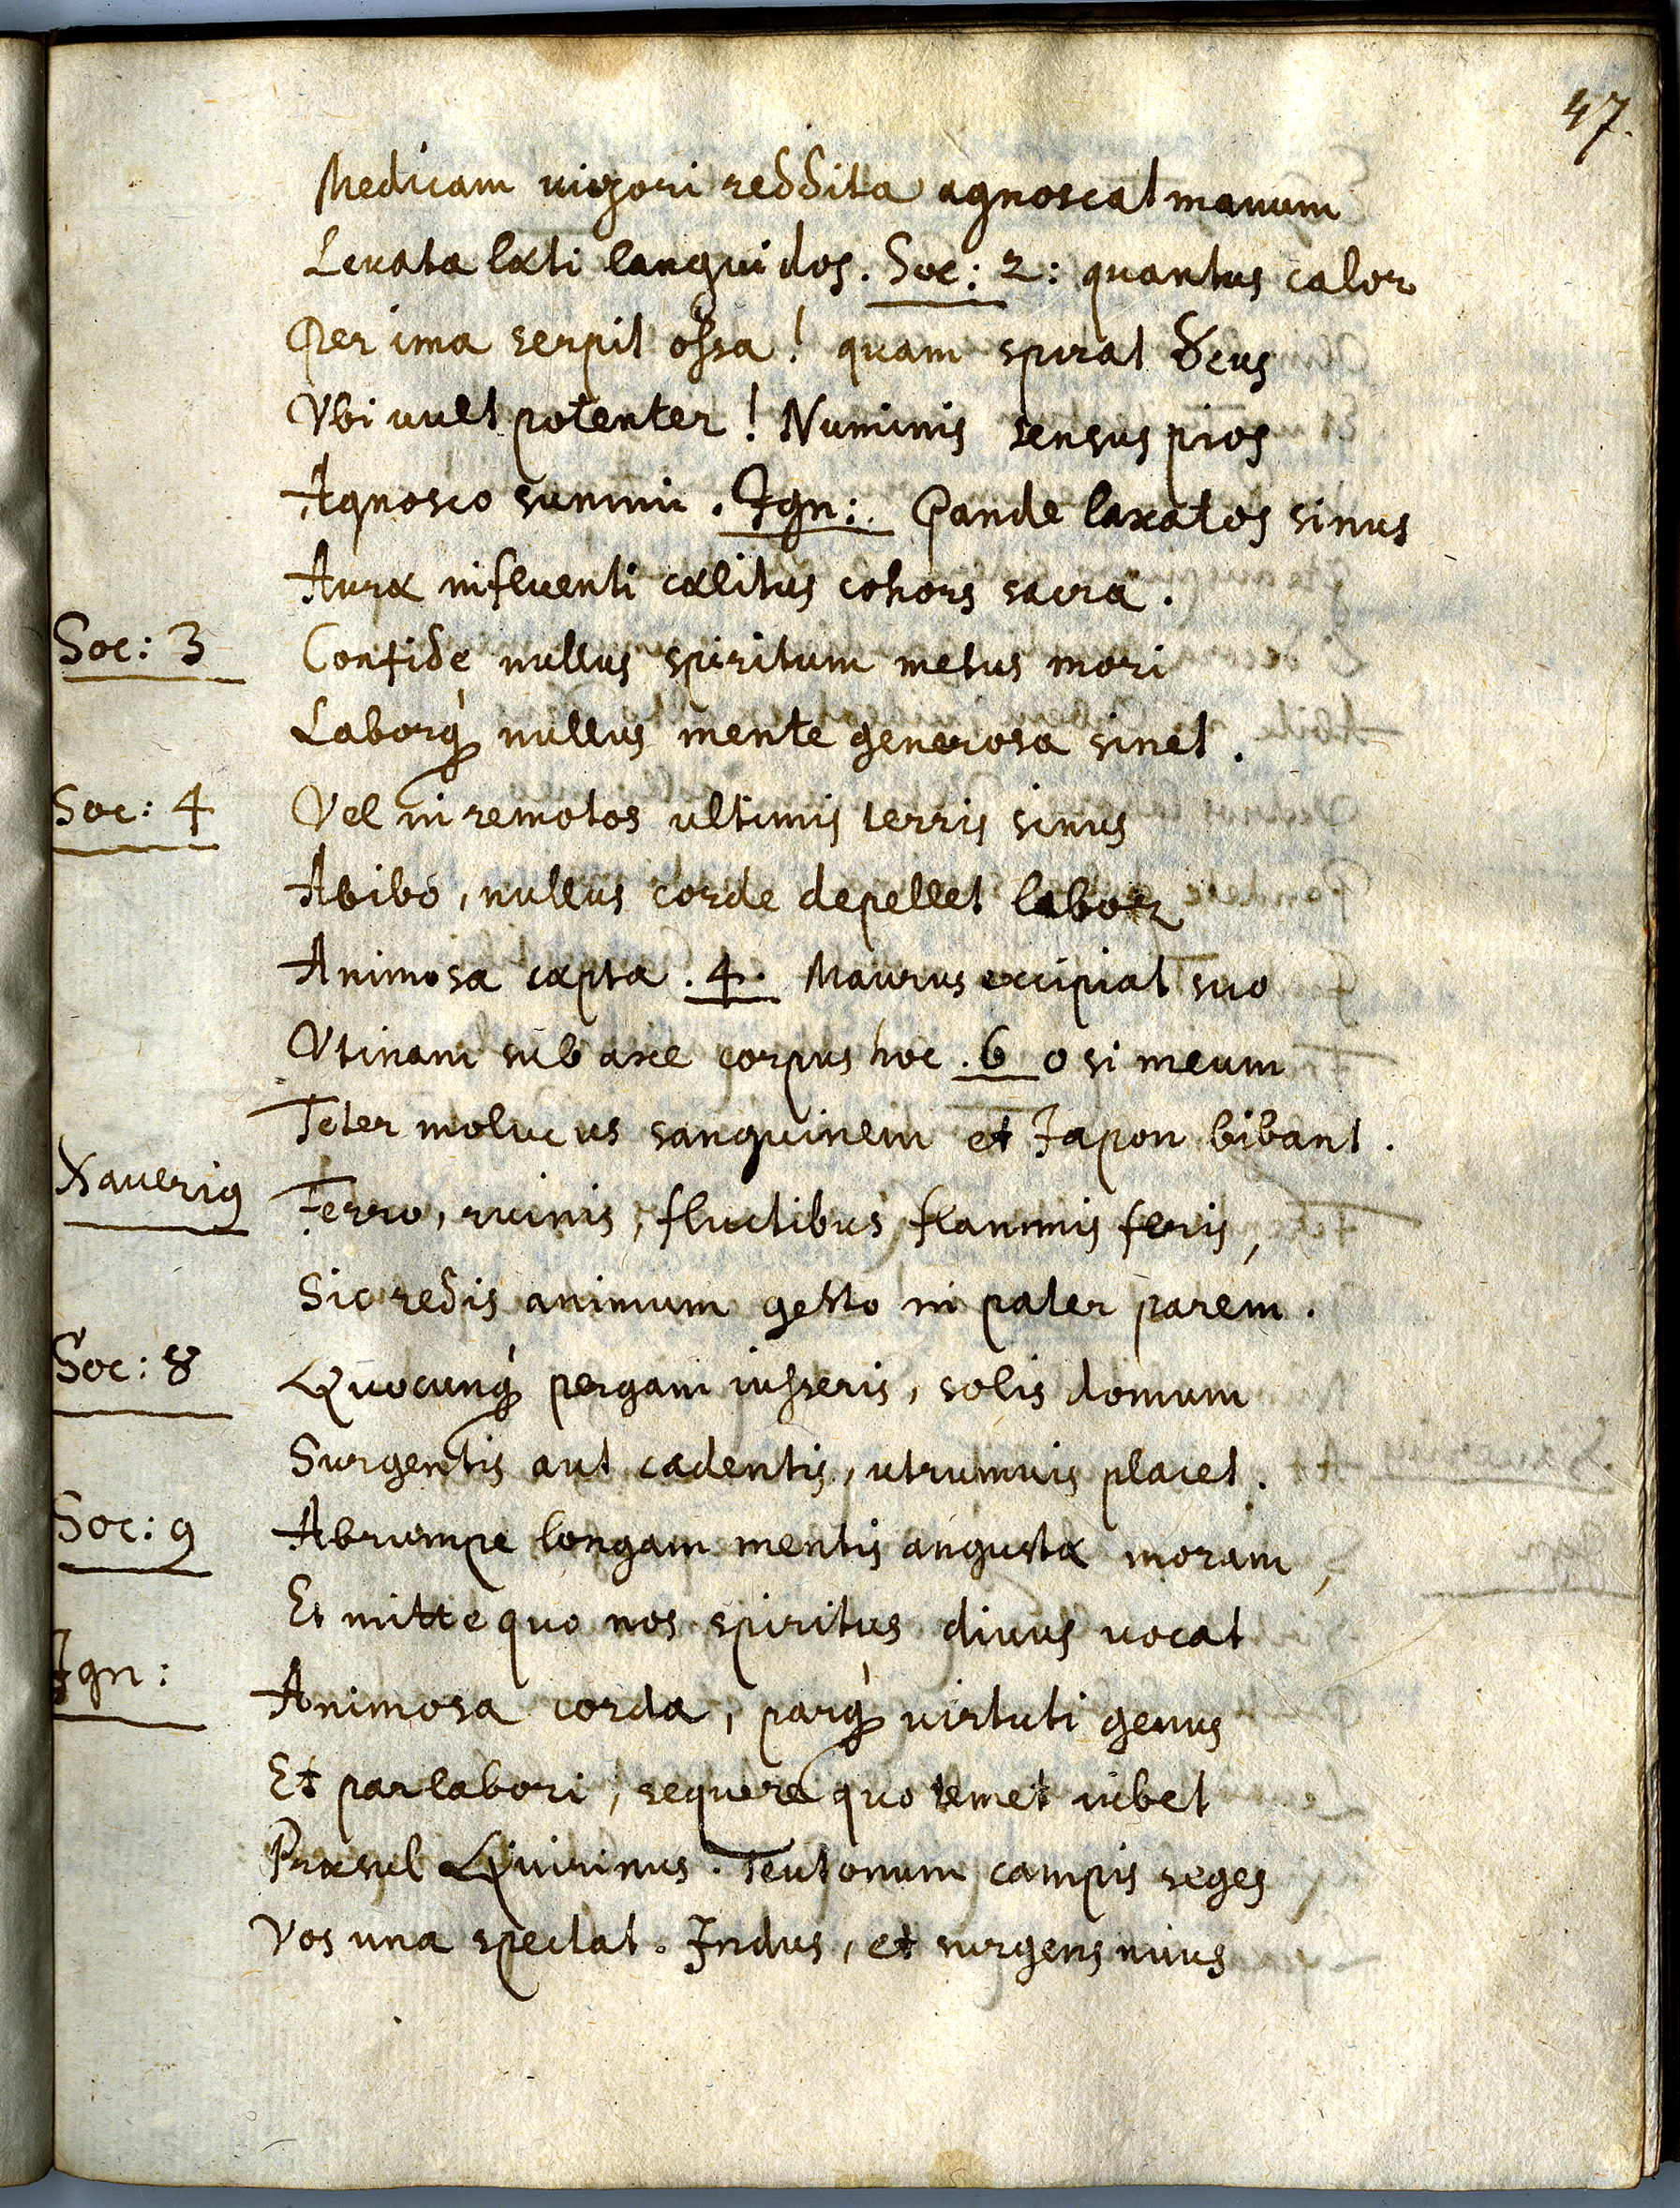 47.
Medicam vigori reddita agnoscat manum
Levata læti languidos. Soc: 2: quantus calor
Per ima serpit ossa! quam spirat Deus
Vbi vult potenter! Numinis sensus pios
Agnosco summi. Ign: Pande laxatos sinus
Auræ influenti cælitus cohors sacra.
Soc: 3 Confide nullus spiritum metus mori
Laborq́ nullus mente generosa sinet.
Soc: 4 Vel in remotos ultimis terris sinus
Abibo, nullus corde depellet labor
Animosa cæpta. 4. Maurus excipiat suo
Vtinam sub axe corpus hoc. 6 o si meum
Teter molucus sanguinem et Japon bibant.
Xaverig Ferro, ruinis, fluctibus, flammis feris,
Sic redis animum gesto in pater parem.
Soc: 8 Quocunq́ pergam iusseris, solis domum
Surgentis aut cadentis, utrumvis placet.
Soc: 9 Abrumpe longam mentis angustæ moram,
Et mitte quo nos spiritus divus vocat
Ign: Animosa corda, parq́ virtuti genus
Et par labori, sequere quo temet iubet
Præsul Quirinus. Teutonum campis seges
Vos una spectat. Indus, et surgens nivus